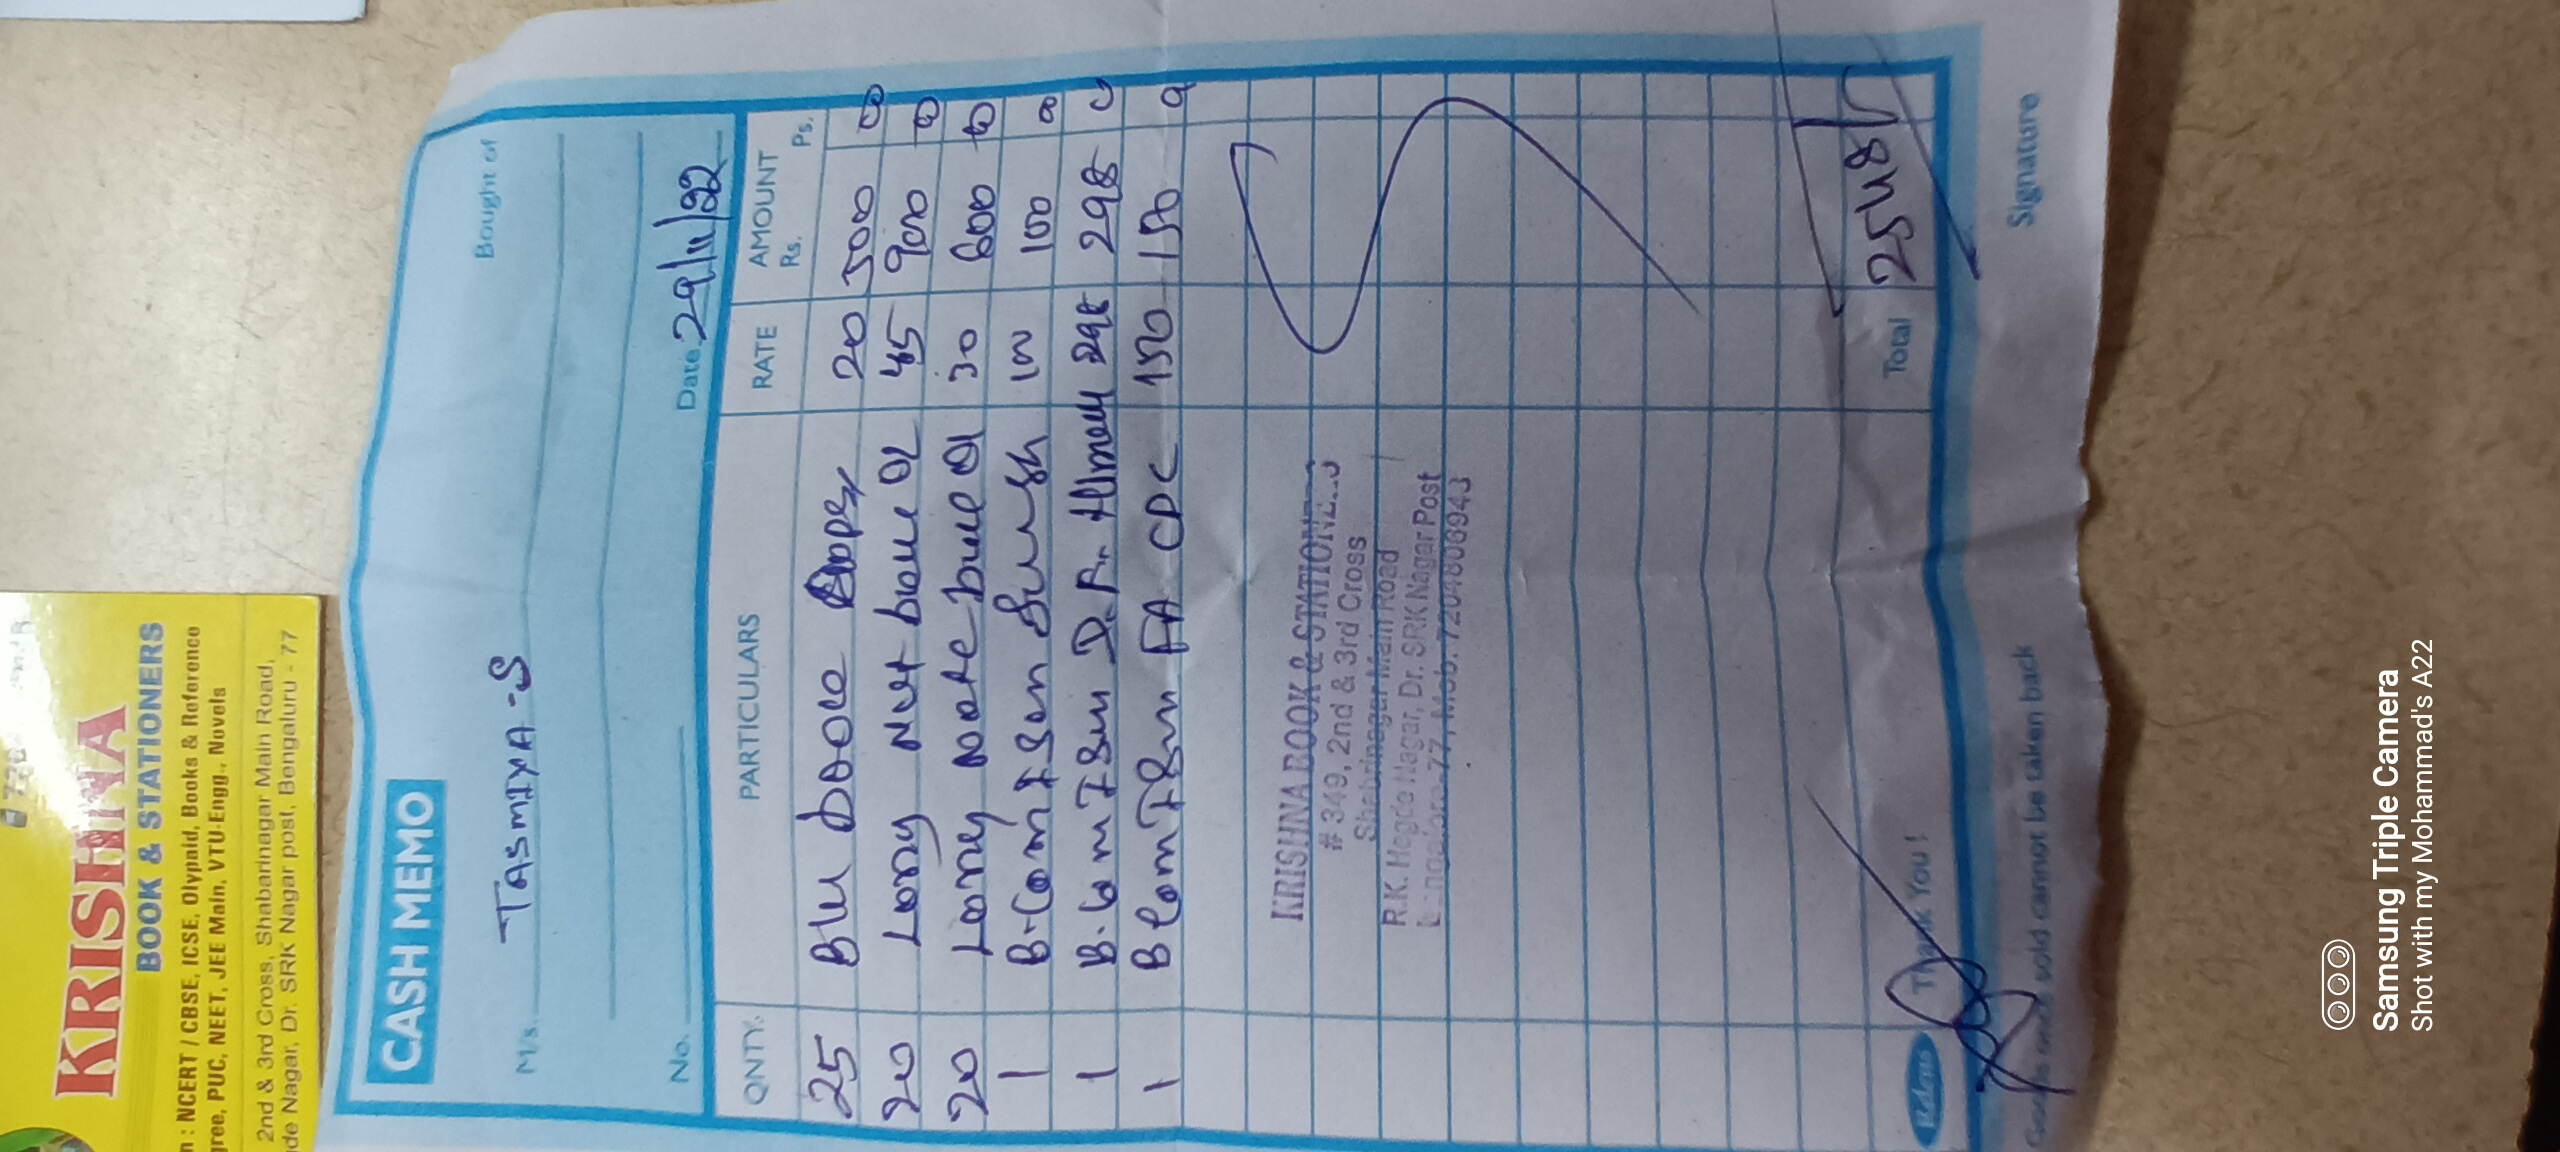 KRISHNA
BOOK & STATIONERS
n : NCERT / CBSE, ICSE, Olypaid, Books & Reference
gree, PUC, NEET, JEE Main, VTU-Engg., Novels
2nd & 3rd Cross, Shabarinagar Main Road,
de Nagar, Dr. SRK Nagar post, Bengaluru - 77
CASH MEMO
Bought of
M/s. TASMIYA-S
No. Date 29/11/22
QNTY. PARTICULARS RATE AMOUNT
Rs. Ps.
25 Blu book 20 500 00
20 Long Not 45 900 00
20 Long Note 30 600 00
1 B-Com I Sem 100 100 00
1 B.Com I Sem 298 298
1 B Com I Sem FA CPC 150 150
KRISHNA BOOK & STATIONERS
# 349, 2nd & 3rd Cross
Shabrinagar Main Road
R.K. Hegde Nagar, Dr. SRK Nagar Post
77, Mob: 7204806943
Total 2548/-
Relons Thank You!
sold cannot be taken back Signature
Samsung Triple Camera
Shot with my Mohammad's A22